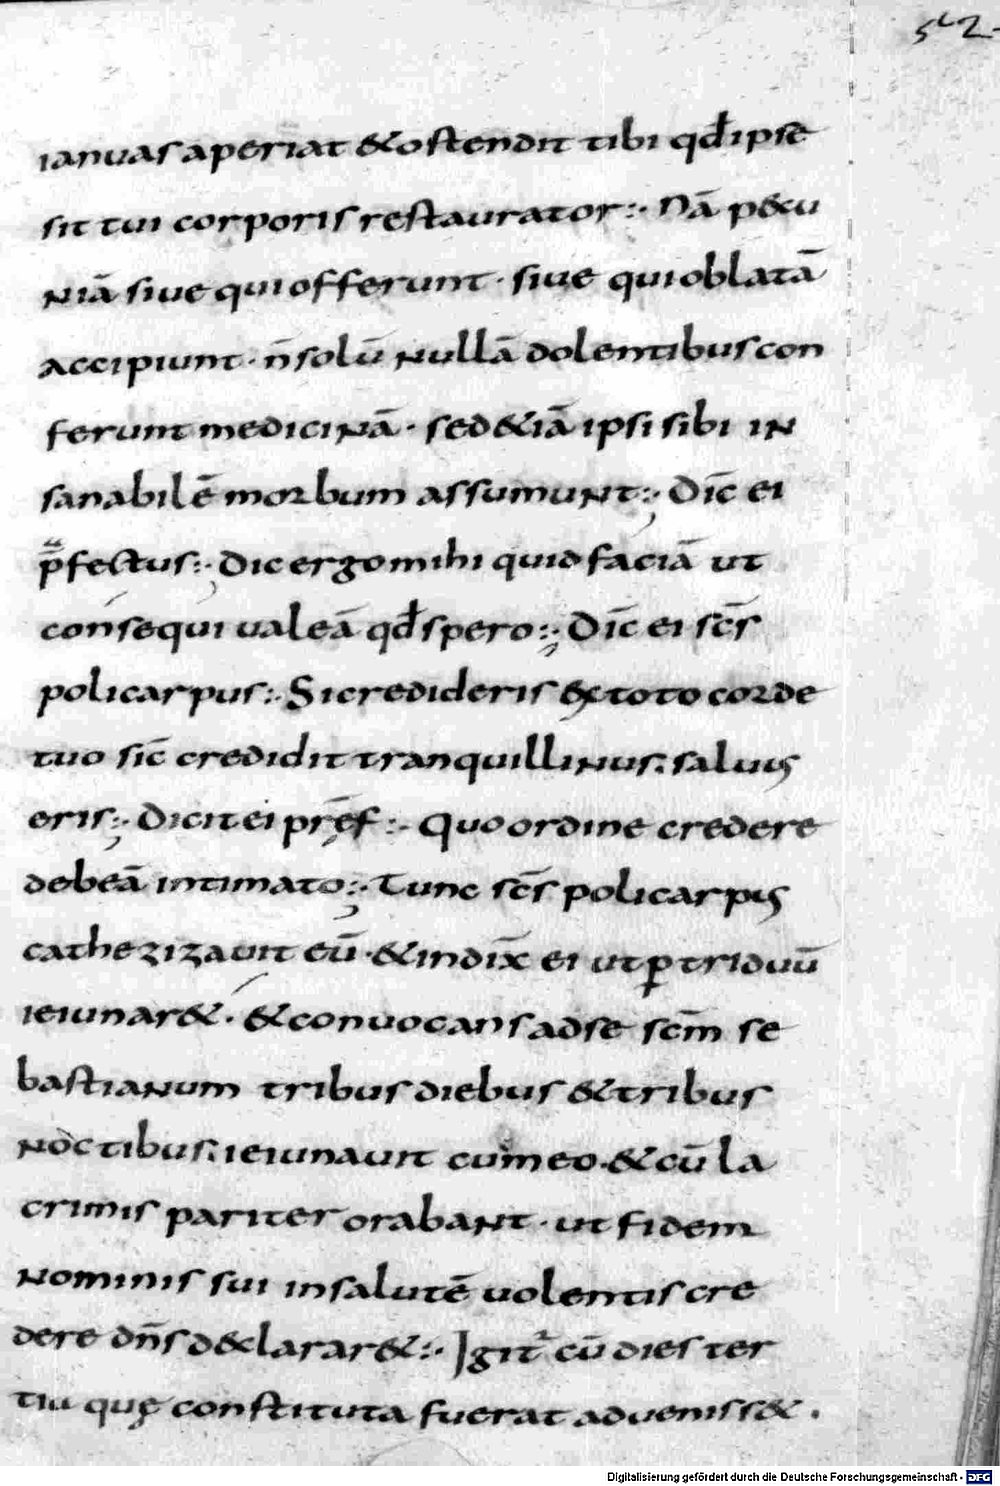 542
ianuas aperiat & ostendit tibi qđ ipse
sit tui corporis restaurator:· Nā p&cu
niā siue qui offerunt · siue qui oblatā
accipiunt · n̄ solū nullā dolentibus con
ferunt medicinā · sed &iā ipsi sibi in
sanabilē morbum assumunt:· Dic̄ ei
p̄fectus:· Dic ergo mihi quid faciā ut
consequi ualeā qđ spero:· Dic̄ ei sc̄s
policarpus:· Si credideris ex toto corde
tuo sic̄ credidit tranquillinus: saluus
eris:· Dicit ei pręf̄:· Quo ordine credere
debeā intimato:· Tunc sc̄s policarpus
cathezizauit eū · & indix̄ ei ut ꝑ triduū
ieiunar& · & conuocans ad se sc̄m se
bastianum tribus diebus & tribus
noctibus: ieiunauit cum eo · & cū la
crimis pariter orabant · ut fidem
nominis sui in salutē uolentis cre
dere dn̄s d&clarar&:· Igit̉ cū dies ter
tiu quę constituta fuerat adueniss& ·
Digitalisierung gefördert durch die Deutsche Forschungsgemeinschaft - DFG